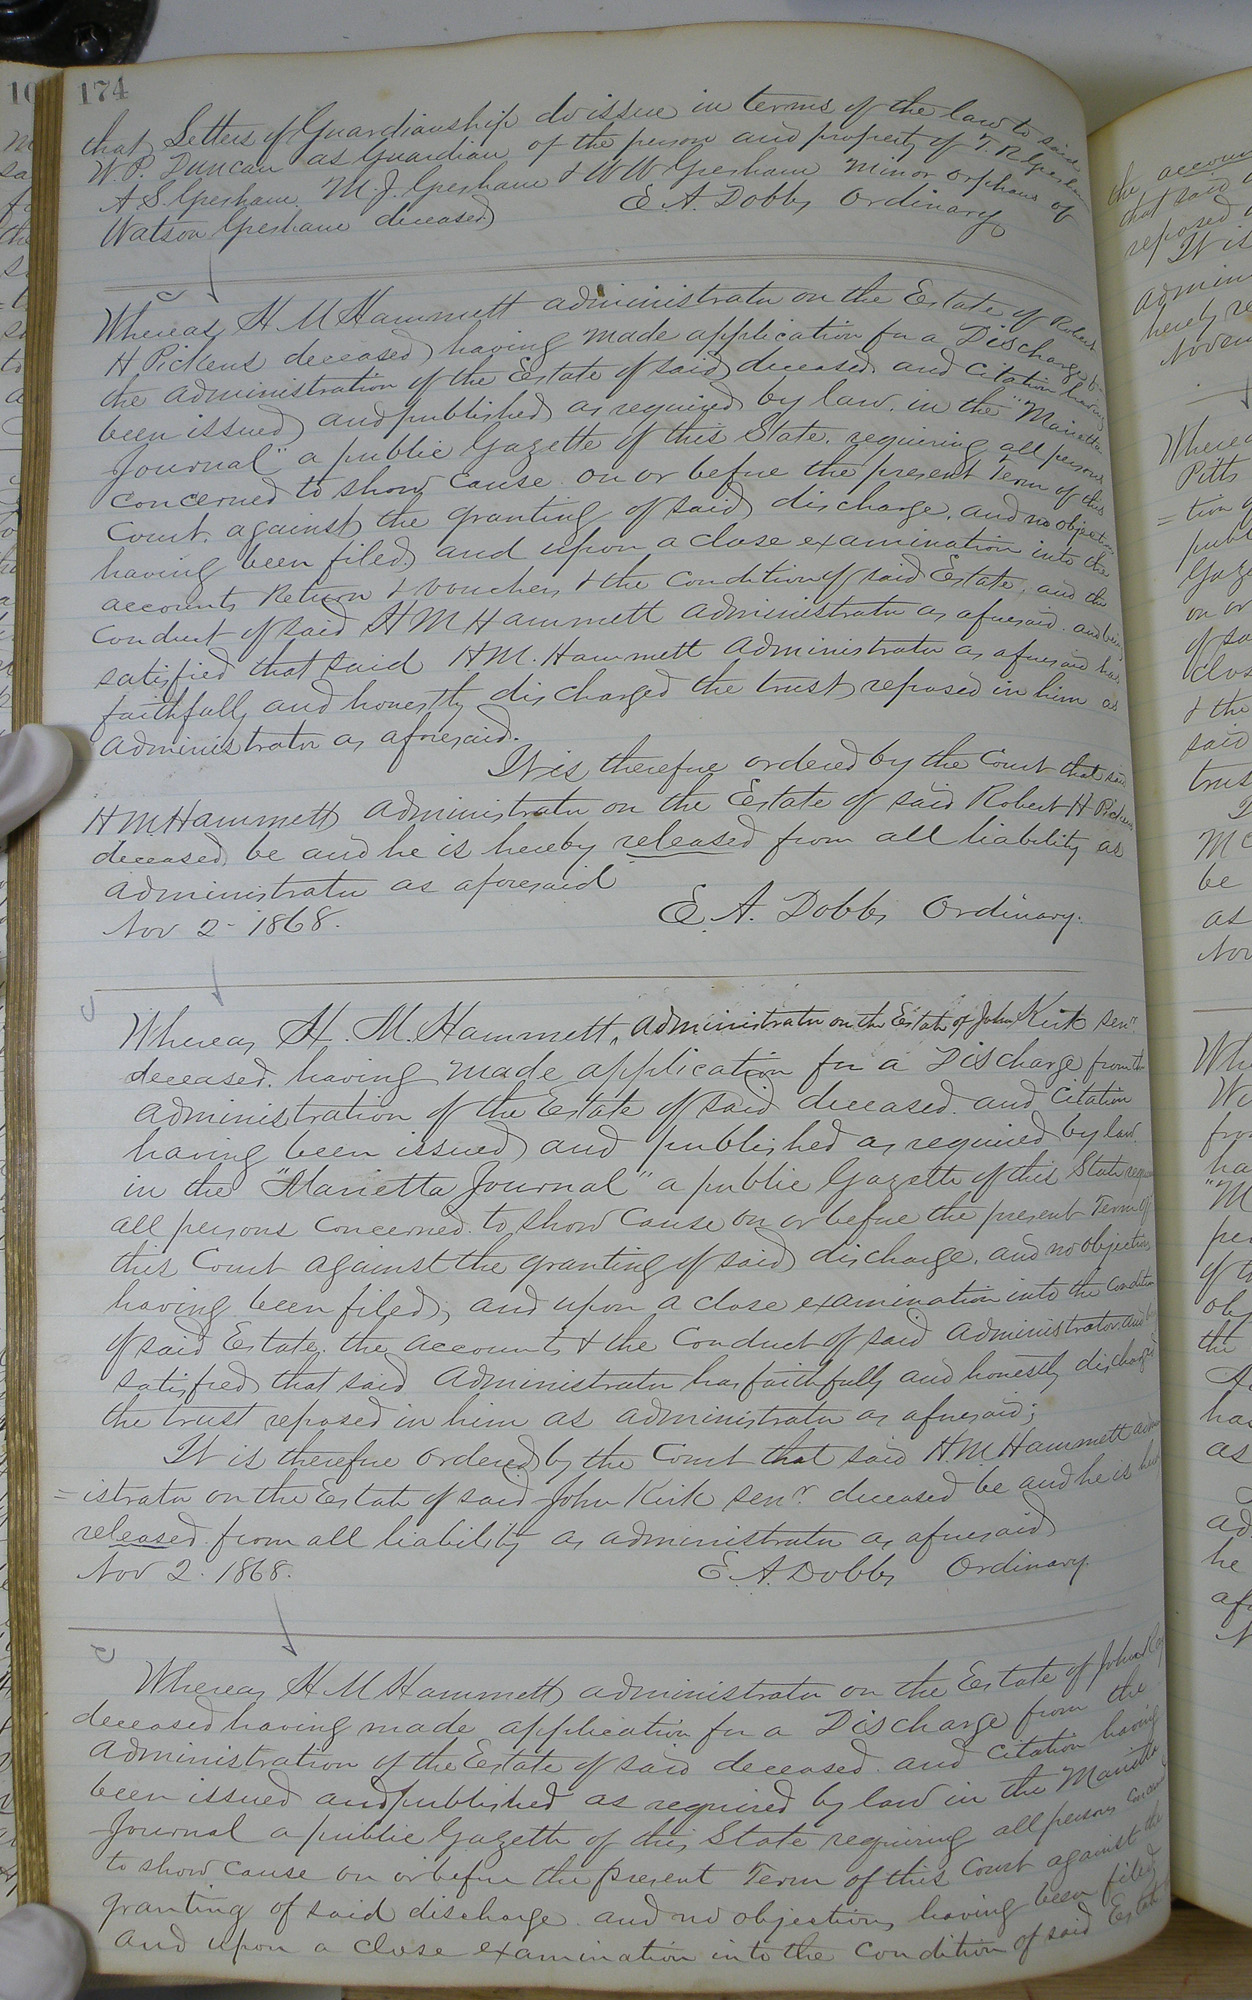 174
that Letters of Guardianship do issue in terms of the law to said
W. P. Duncan as Guardian of the person and property of T. R. Gresham
A S. Gresham, M. J. Gresham & W W Gresham minor orphans of
Watson Gresham deceased
E. A. Dobbs Ordinary
Whereas H M Hammett administrator on the Estate of Robert
H Pickens deceased having made application for a Discharge
the administration of the Estate of said deceased and Citation having
been issued and published as required by law. in the "Marietta
Journal" a public Gazette of this State. requiring all persons
concerned to show cause on or before the present Term of this
Court. against the granting of said discharge, and no objection
having been filed and upon a close examination into the
accounts Return & vouchers & the Condition of said Estate, and the
Conduct of said H M Hammett administrator as aforesaid. and being
satisfied that said H M. Hammett administrator as aforesaid has
faithfully and honestly discharged the trust reposed in him as
administrator as aforesaid.
It is therefore ordered by the Court that said
H M Hammett administrator on the Estate of said Robert H Pickens
deceased be and he is hereby released from all liability as
administrator as aforesaid
Nov 2 - 1868.
E. A. Dobbs Ordinary.
Whereas H. M. Hammett, administrator on the Estate of John Kirk Senr
deceased. having made application for a Discharge from the
administration of the Estate of said deceased. and Citation
having been issued and published as required by law.
in the "Marietta Journal" a public Gazette of this State
all persons concerned. to show cause on or before the present Term of
this Court against the granting of said discharge. and no objections
having been filed, and upon a close examination into the condition
of said Estate. the accounts & the Conduct of said administrator and
satisfied that said administrator has faithfully and honestly discharged
the trust reposed in him as administrator as aforesaid;
It is therefore ordered by the Court that said H. M. Hammett admin
=istrator on the Estate of said John Kirk Senr. deceased be and he is
released from all liability as administrator as aforesaid
Nov 2. 1868.
E. A. Dobbs Ordinary.
Whereas H M Hammett administrator on the Estate of John
deceased having made application for a Discharge from the
administration of the Estate of said deceased and Citation having
been issued and published as required by law in the Marietta
Journal a public Gazette of this State requiring all persons
to show cause on or before the present Term of this Court against the
granting of said discharge. and no objections having been filed
and upon a close examination into the condition of said Estate